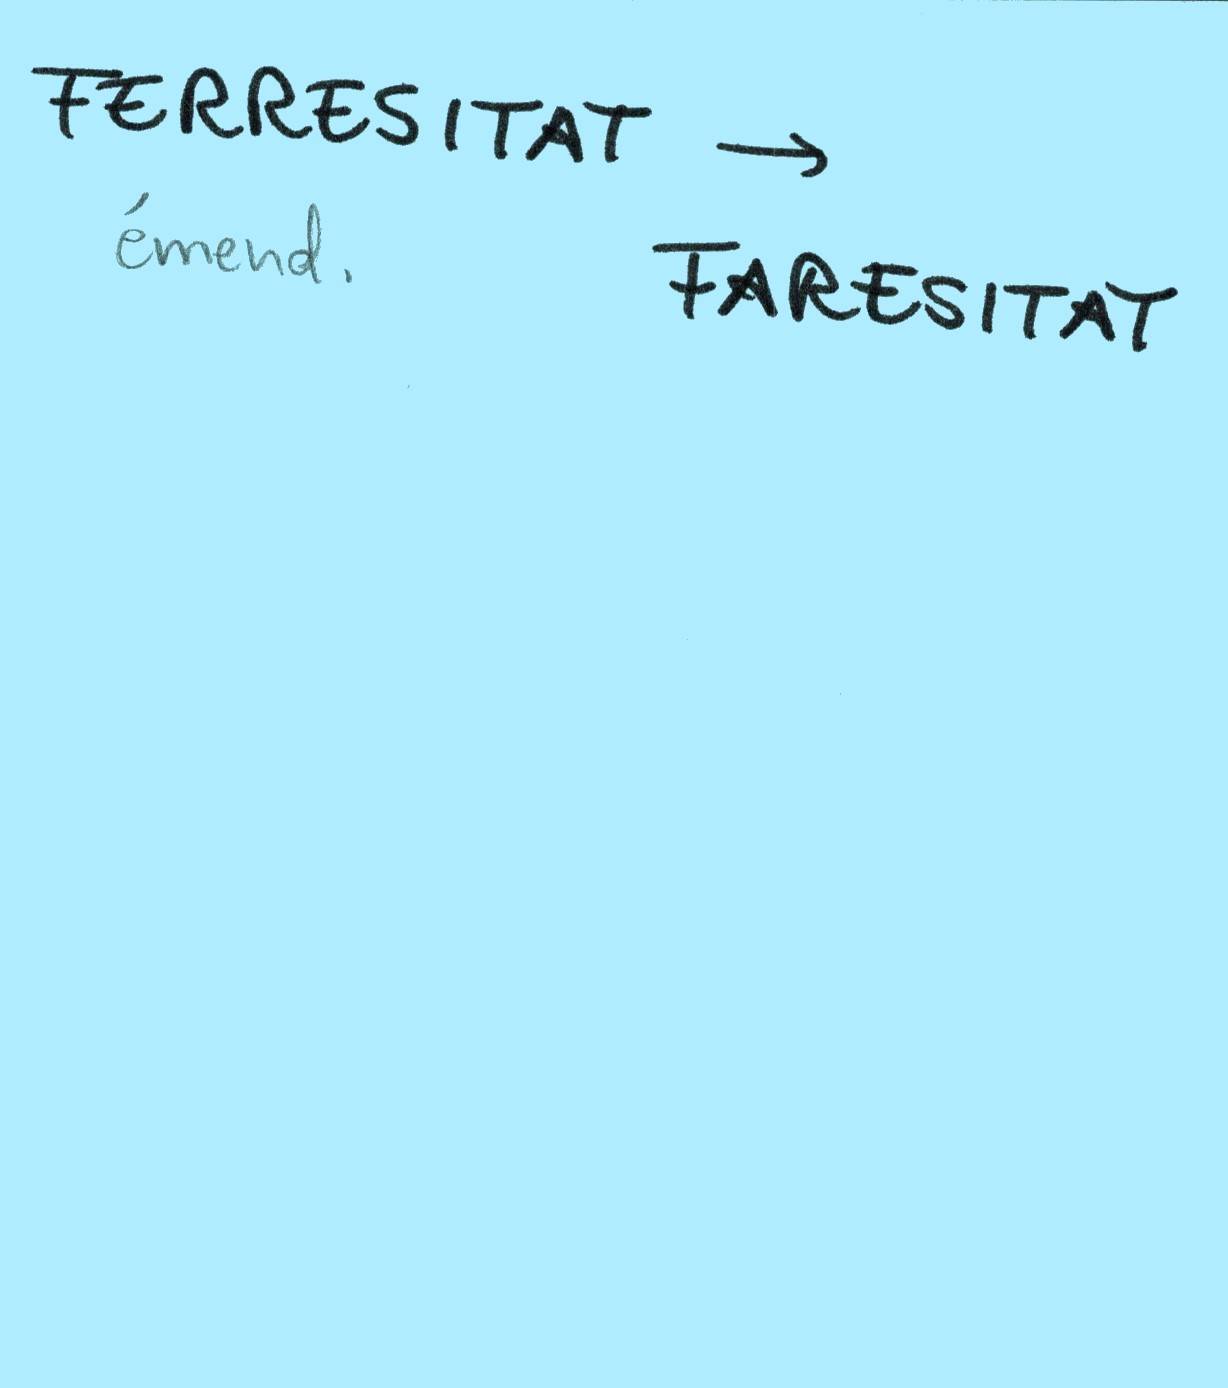 FERRESITAT →
émend.
FARESITAT